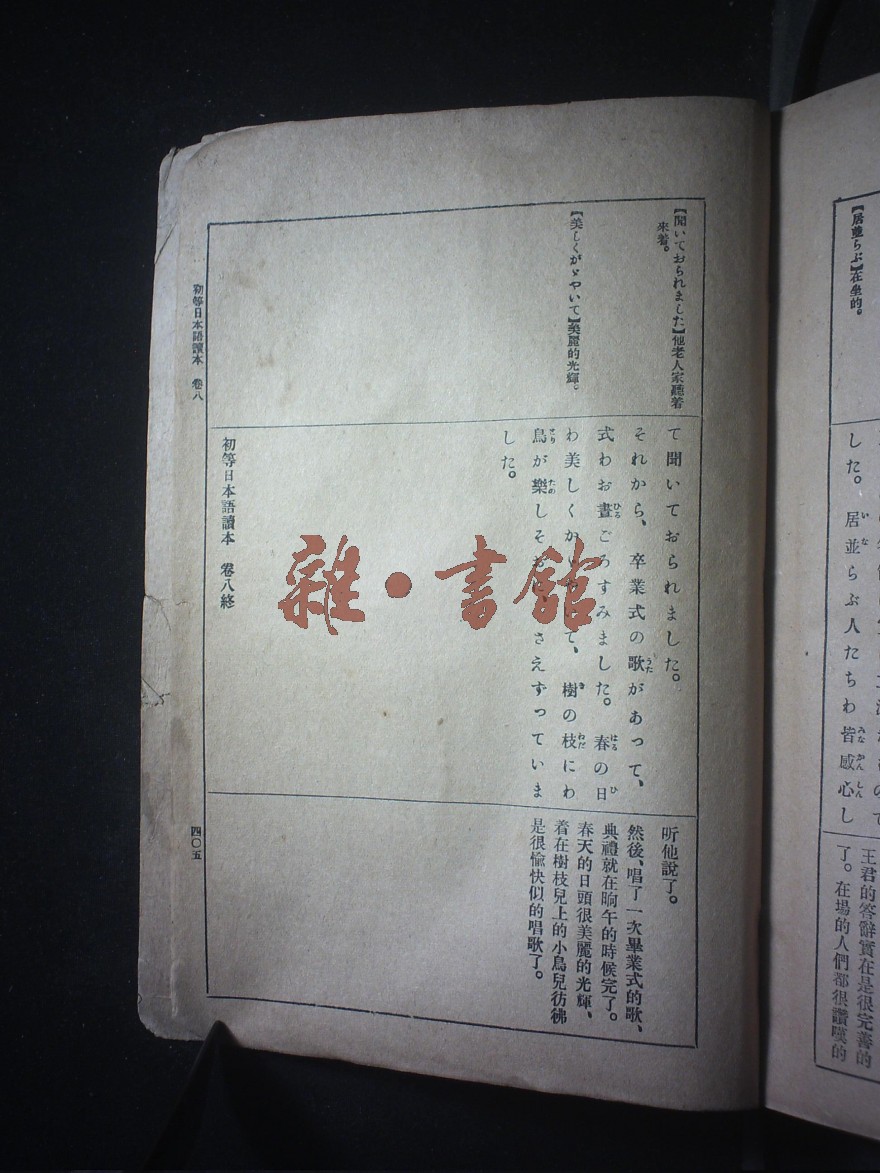 【居並らぶ】在坐的。
した。居並らぶ人たちわ皆感心し
王君的答辭實在是很完善的
了。在場的人們都很讚嘆的
【聞いておられました】他老人家聽着
來着。
【美しくがゞやいて】美麗的光輝。
て聞いておられました。
それから、卒業式の歌があって、
式わお晝ごろすみました。春の日
わ美しくか て、樹の枝にわ
鳥が樂しそお さえずっていま
した。
初等日本語讀本 卷八終
听他說了。
然後、唱了一次畢業式的歌、
典禮就在晌午的時候完了。
春天的日頭很美麗的光輝、
着在樹枝兒上的小鳥兒彷彿
是很愉快似的唱歌了。
初等日本語讀本 卷八
四〇五
雜·書館